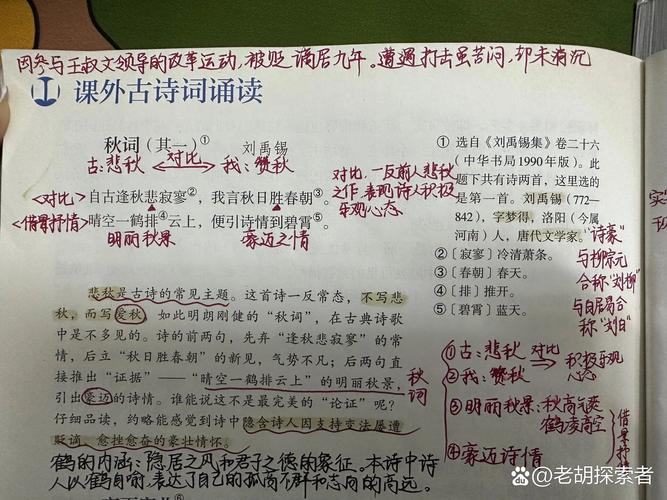 因参与王叔文领导的改革运动,被贬谪居九年。遭遇打击虽苦闷,却未消沉
课外古诗词诵读
秋词(其一)①
刘禹锡
古:悲秋 <对比> 我:赞秋
<对比> 自古逢秋悲寂寥②,我言秋日胜春朝③。
<借景抒情> 晴空一鹤排④云上,便引诗情到碧霄⑤。
明丽秋景 豪迈之情
对比,一反前人悲秋
之作,表现诗人积极
乐观心态
① 选自《刘禹锡集》卷二十六
(中华书局1990年版)。此
题下共有诗两首,这里选的
是第一首。刘禹锡(772—
842),字梦得,洛阳(今属
河南)人,唐代文学家。"诗豪"
②〔寂寥〕冷清萧条。
③〔春朝〕春天。
④〔排〕推开。
⑤〔碧霄〕蓝天。
与柳宗元
合称"刘柳"
与白居易合
称"刘白"
悲秋是古诗的常见主题。这首诗一反常态,不写悲
秋,而写爱秋。如此明朗刚健的"秋词",在古典诗歌
中是不多见的。诗的前两句,先弃"逢秋悲寂寥"的常
情,后立"秋日胜春朝"的新见,气势不凡;后两句直
接推出"证据"——"晴空一鹤排云上"的明丽秋景,
引出豪迈的诗情。谁能说这不是最完美的"论证"呢?
仔细品读,约略能感觉到诗中隐含诗人因支持变法屡遭
贬谪、愈挫愈奋的豪壮情怀。
秋词
①古:悲秋 对比 积极乐观
②我:赞秋 心态
③明丽秋景:秋高气爽
鹤凌高空
④豪迈诗情
借景抒
鹤的内涵:隐居之风和君子之德的象征。本诗中诗
人以鹤自喻,表达了自己的孤高不群和志向的高远。
@老胡探索者